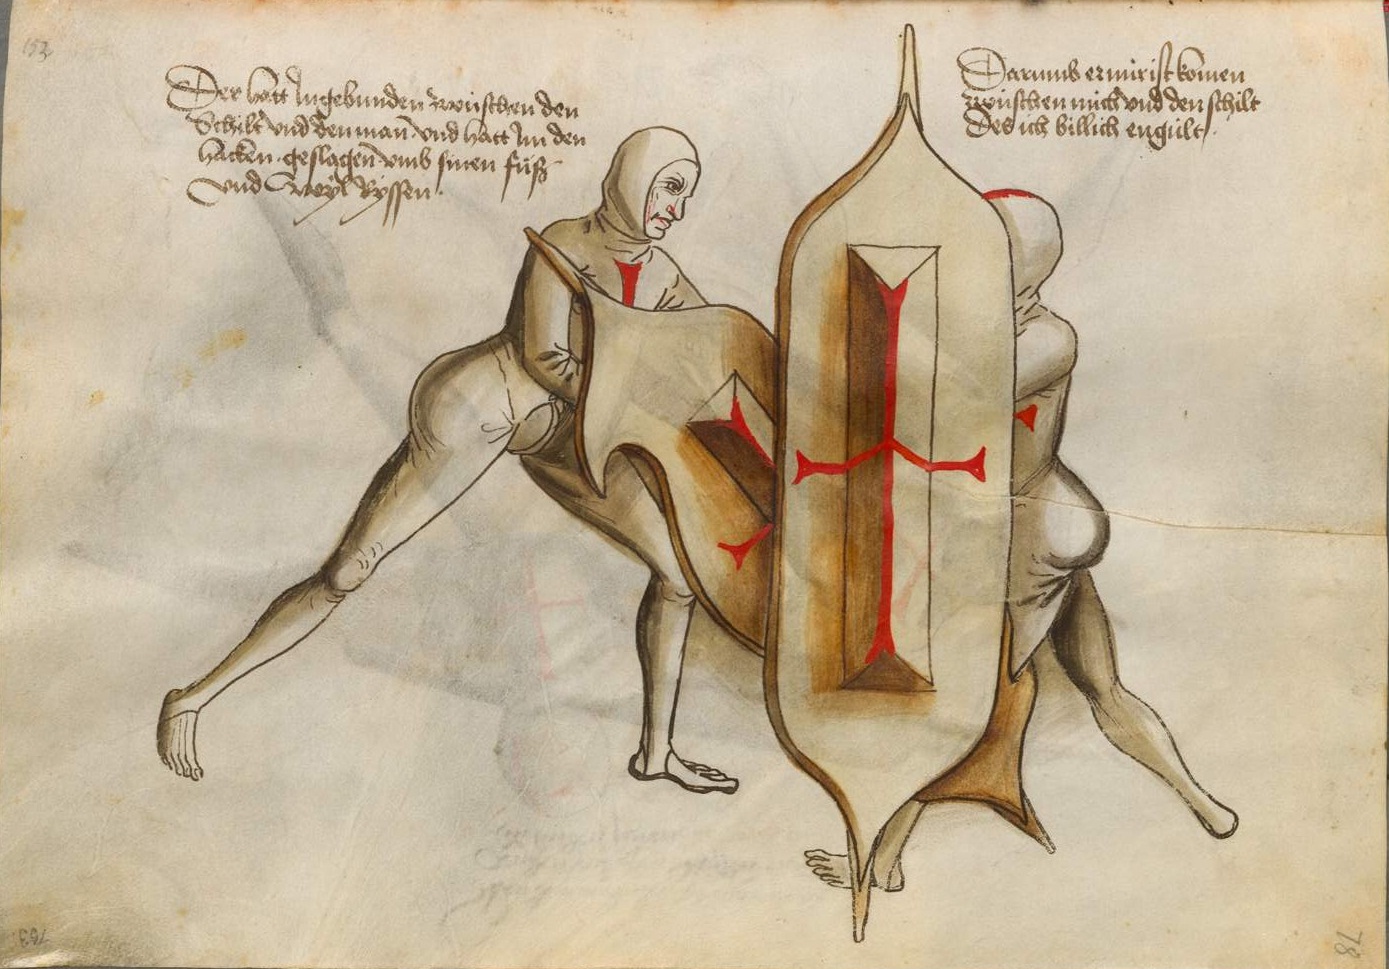 Der hatt Ingebunden zwüschen den
Schilt vnd den man vnd hatt Im den
hacken geslagen vmb sinen füß
vnd Weÿl Rÿssen
Darumb er mir ist komen
zwüschen mich vnd den schilt
Des ich billich engült
153
78